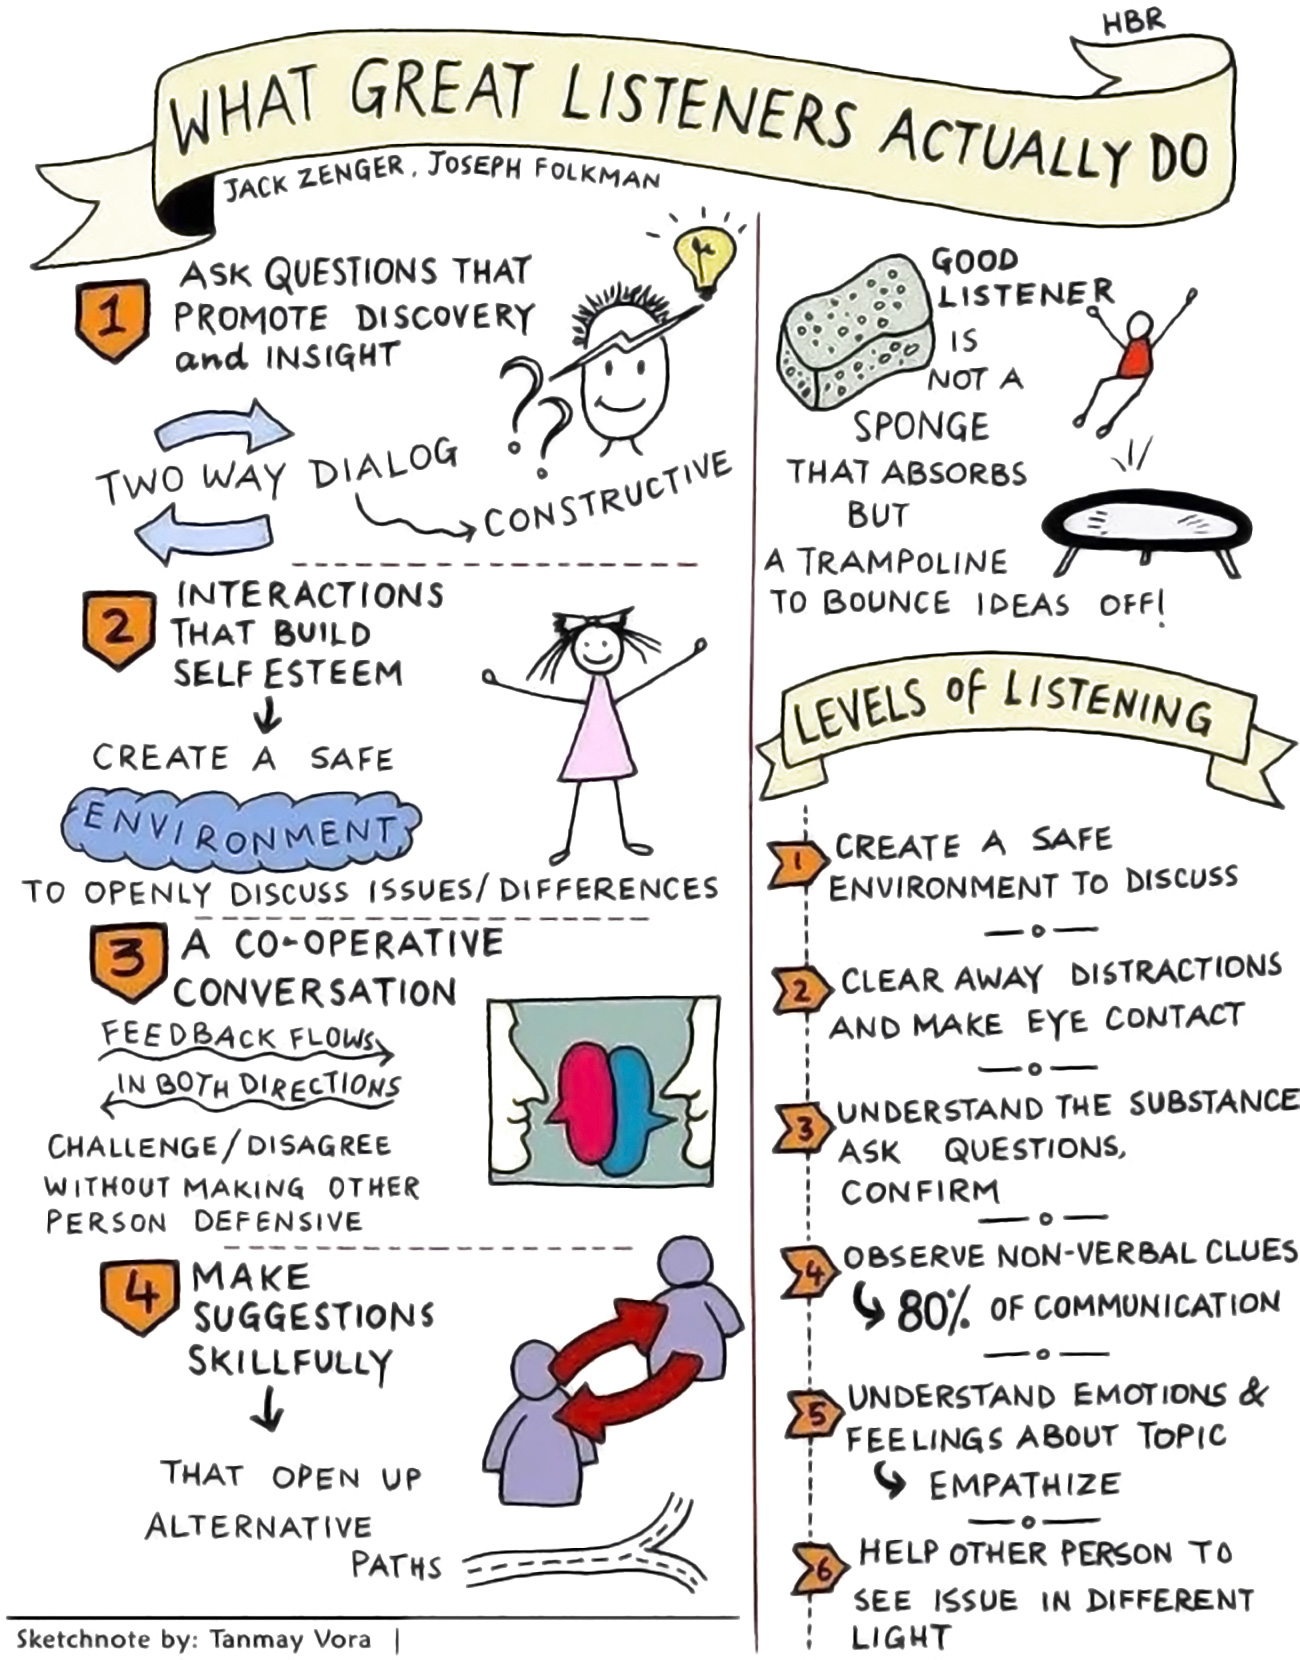 HBR
WHAT GREAT LISTENERS ACTUALLY DO
JACK ZENGER, JOSEPH FOLKMAN
1
ASK QUESTIONS THAT
PROMOTE DISCOVERY
and INSIGHT
? ?
TWO WAY DIALOG
CONSTRUCTIVE
2
INTERACTIONS
THAT BUILD
SELF ESTEEM
CREATE A SAFE
ENVIRONMENT
TO OPENLY DISCUSS ISSUES/DIFFERENCES
3
A CO-OPERATIVE
CONVERSATION
FEEDBACK FLOWS
IN BOTH DIRECTIONS
CHALLENGE/DISAGREE
WITHOUT MAKING OTHER
PERSON DEFENSIVE
4
MAKE
SUGGESTIONS
SKILLFULLY
THAT OPEN UP
ALTERNATIVE
PATHS
Sketchnote by: Tanmay Vora |
GOOD
LISTENER
IS
NOT A
SPONGE
THAT ABSORBS
BUT
A TRAMPOLINE
TO BOUNCE IDEAS OFF!
LEVELS OF LISTENING
1
CREATE A SAFE
ENVIRONMENT TO DISCUSS
2
CLEAR AWAY DISTRACTIONS
AND MAKE EYE CONTACT
3
UNDERSTAND THE SUBSTANCE
ASK QUESTIONS,
CONFIRM
4
OBSERVE NON-VERBAL CLUES
80% OF COMMUNICATION
5
UNDERSTAND EMOTIONS &
FEELINGS ABOUT TOPIC
EMPATHIZE
6
HELP OTHER PERSON TO
SEE ISSUE IN DIFFERENT
LIGHT